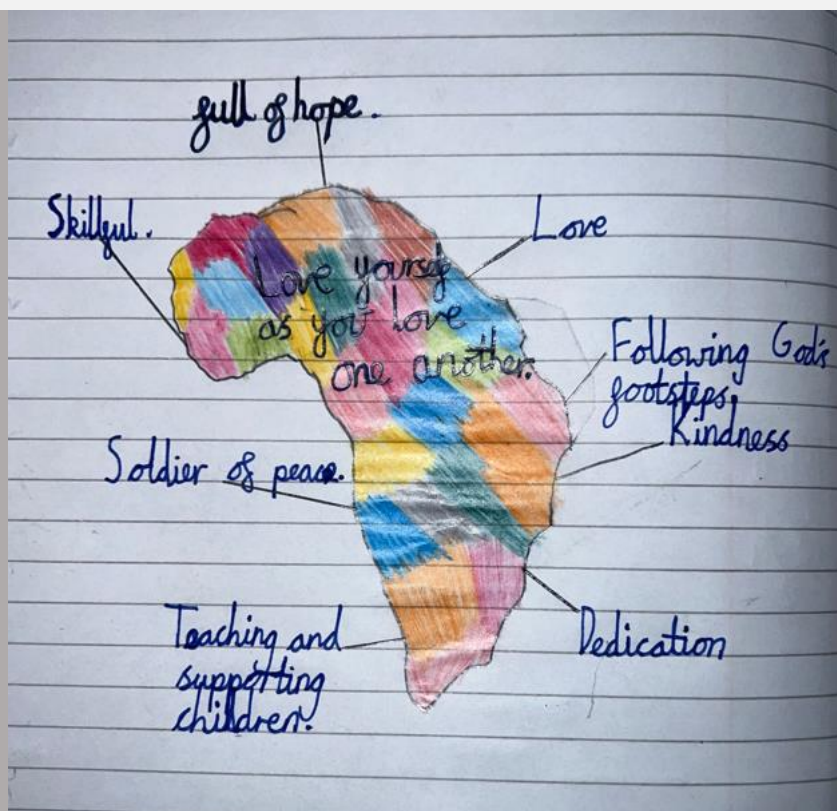 full of hope.
Skillful.
Love
Love yourself
as you love
one another.
Following God's
footsteps.
Kindness
Soldier of peace.
Teaching and
supporting
children.
Dedication